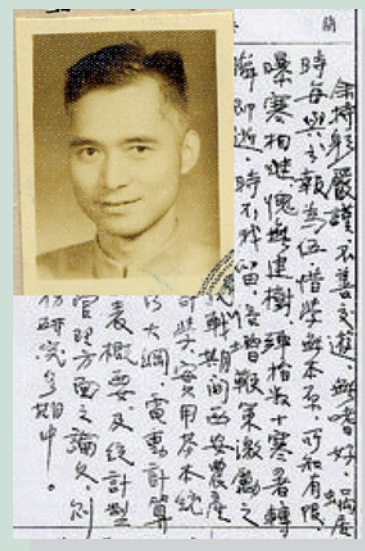 簡
余持躬嚴謹,不善交遊,無嗜好,蝸居
時每與書報為伍,惜學無本原,所知有限,
曝寒相 愧無建樹,彈指數十寒暑轉
瞬即逝,時不我留,倍增鞭策激勵之
戰期間西安農產
學、實用基本統
大綱、電動計算
表概要及統計型
管理方面之論文,則
研究多期中。